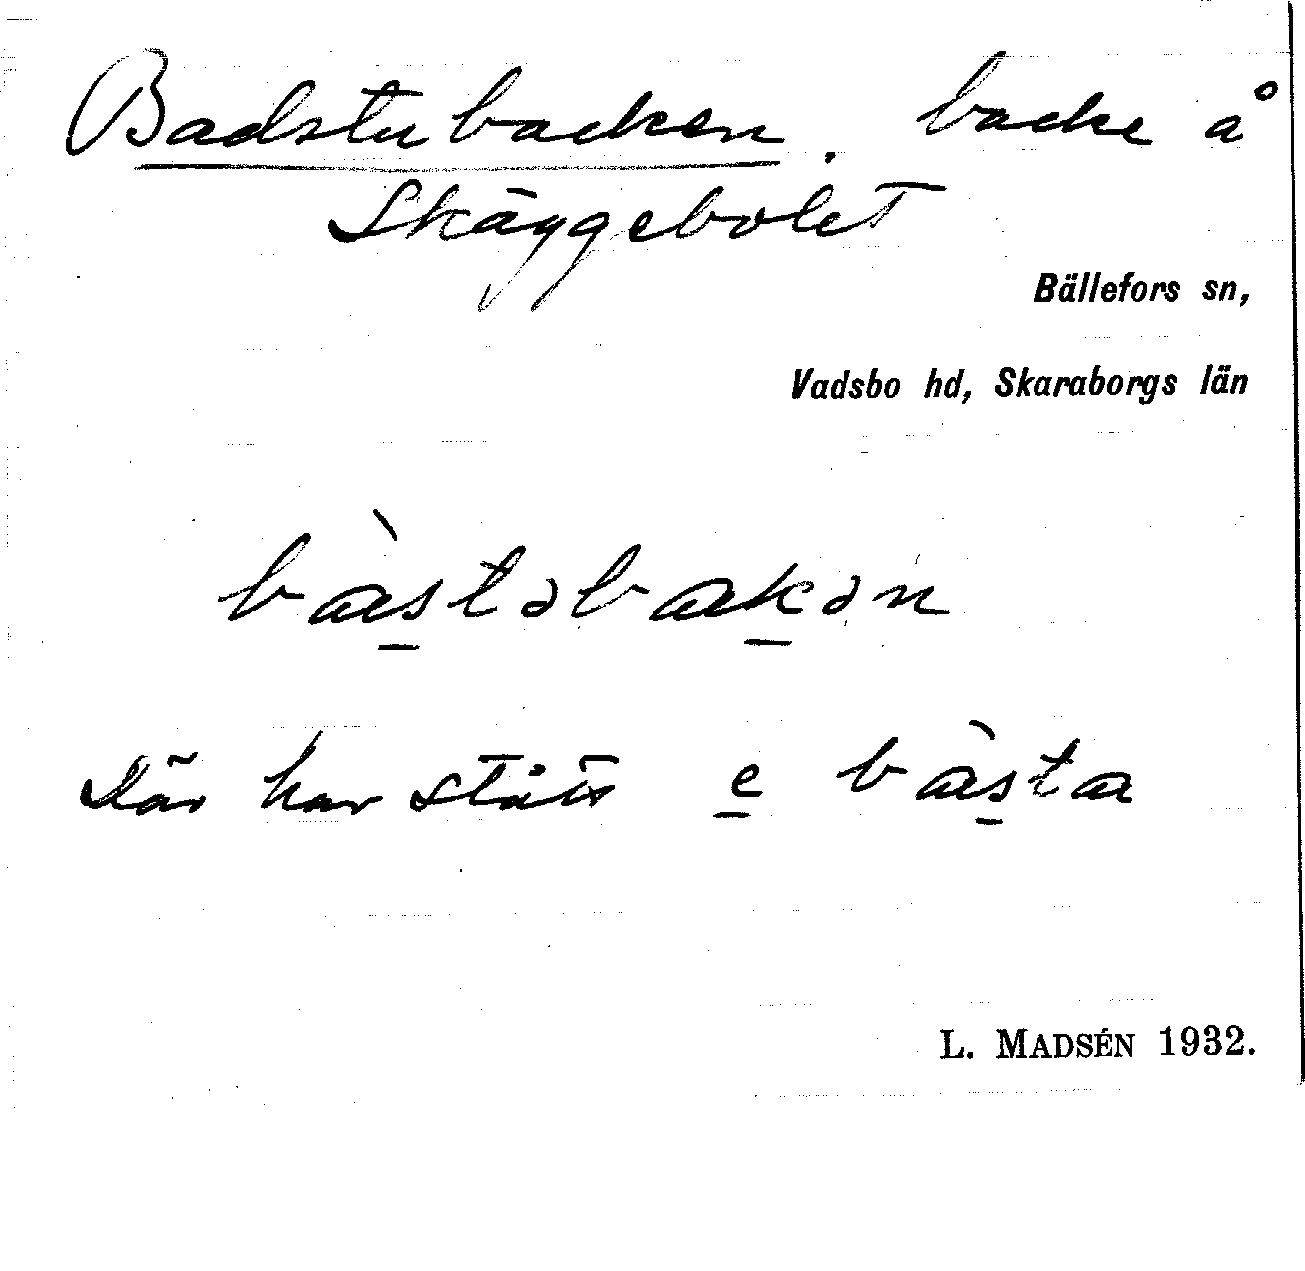 Badstubacken. backe å
Skäggebolet
Bällefors sn,
Vadsbo hd, Skaraborgs län
bàs̠təbak̠ən
Där har stått e̠ bàs̠ta
L. MADSÉN 1932.